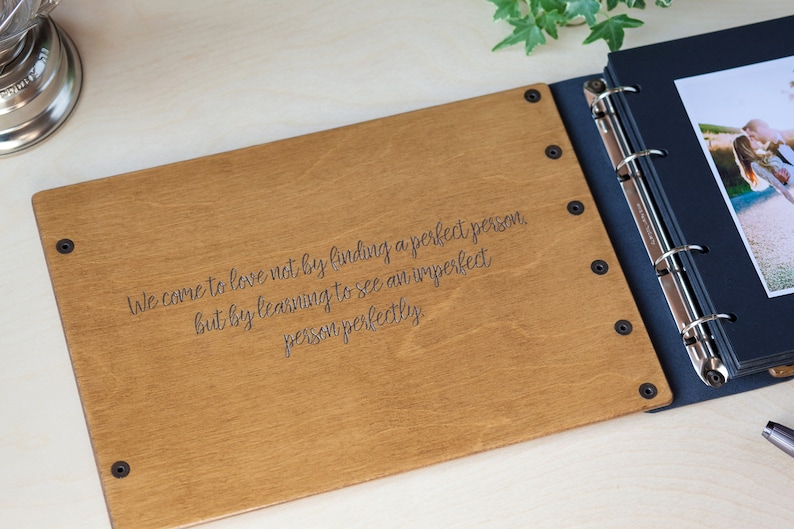 We come to love not by finding a perfect person,
but by learning to see an imperfect
person perfectly.